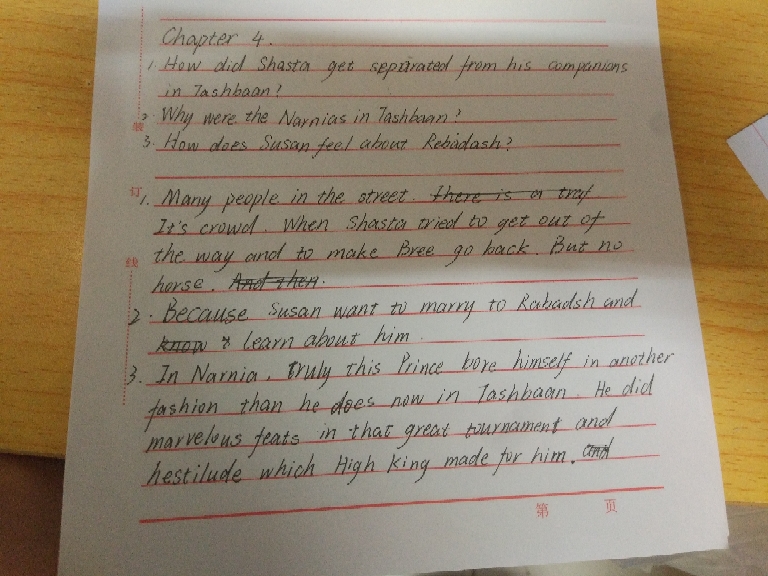 Chapter 4.
1. How did Shasta get sepirated from his companions
in Tashbaan?
2. Why were the Narnias in Tashbaan?
3. How does Susan feel about Rebadash?
1. Many people in the street. There is a traf
It's crowd. When Shasta tried to get out of
the way and to make Bree go back. But no
horse. And then.
2. Because Susan want to marry to Rabadsh and
know & learn about him.
3. In Narnia. Truly this Prince bore himself in another
fashion than he does now in Tashbaan. He did
marvelous feats in that great tournament and
hestilude which High King made for him. and
装
订
线
第 页